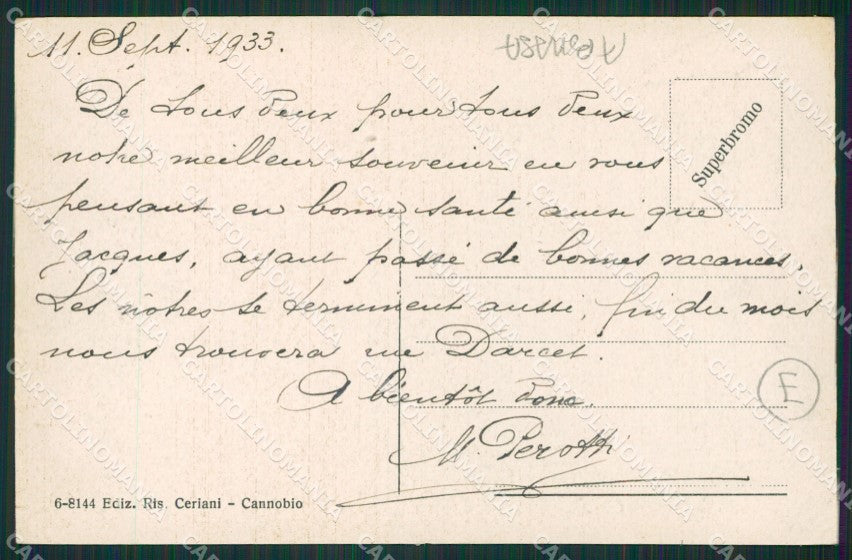 11. Sept. 1933.
De tous deux pour tous deux
notre meilleur souvenir en vous
pensant en bonne santé ainsi que
Jacques, ayant passé de bonnes vacances.
Les nôtres se terminent aussi, fin du mois
nous trouvera rue Darcet.
A bientôt donc.
M. Perotti
Superbromo
E
6-8144 Ediz. Ris. Ceriani - Cannobio
CARTOLINOMANIA